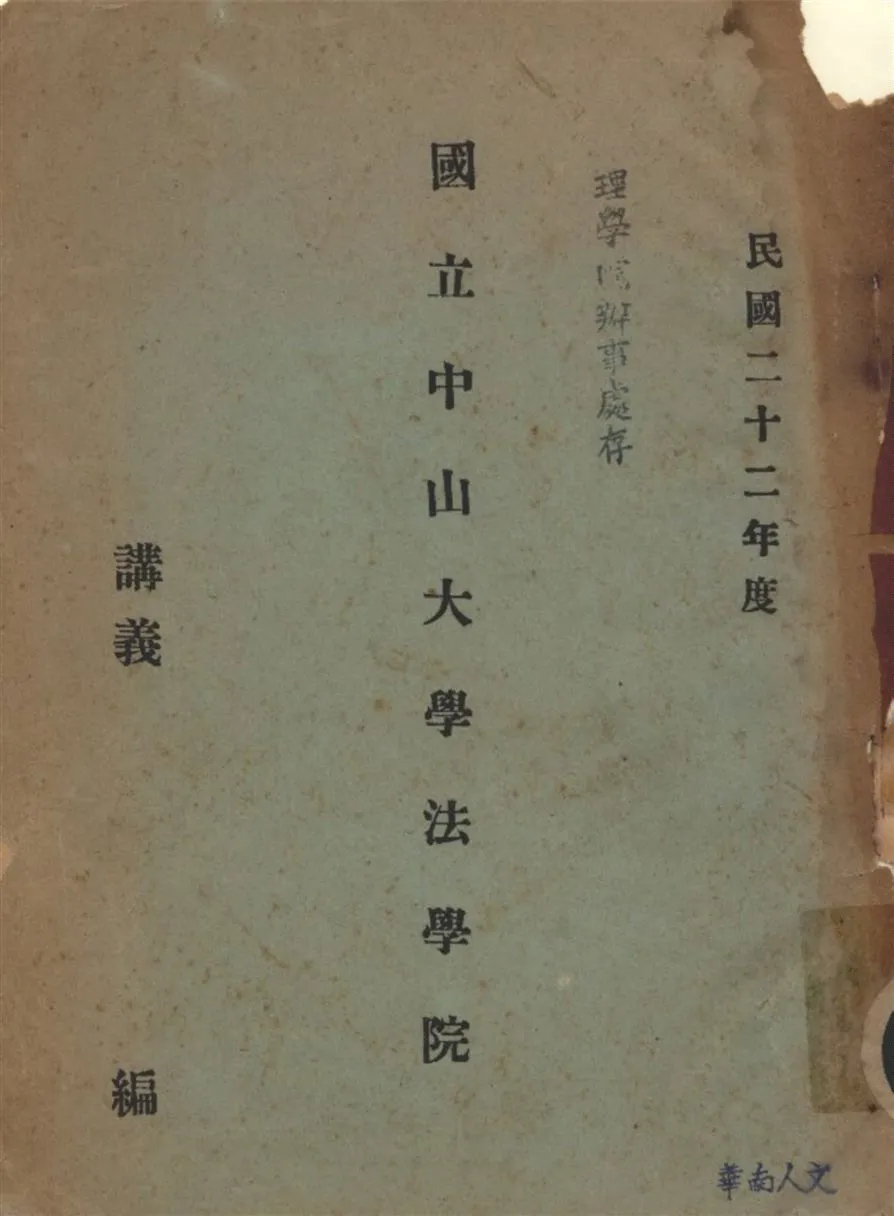 民國二十二年度
理學院辦事處存
國立中山大學法學院
講義　編
華南人文